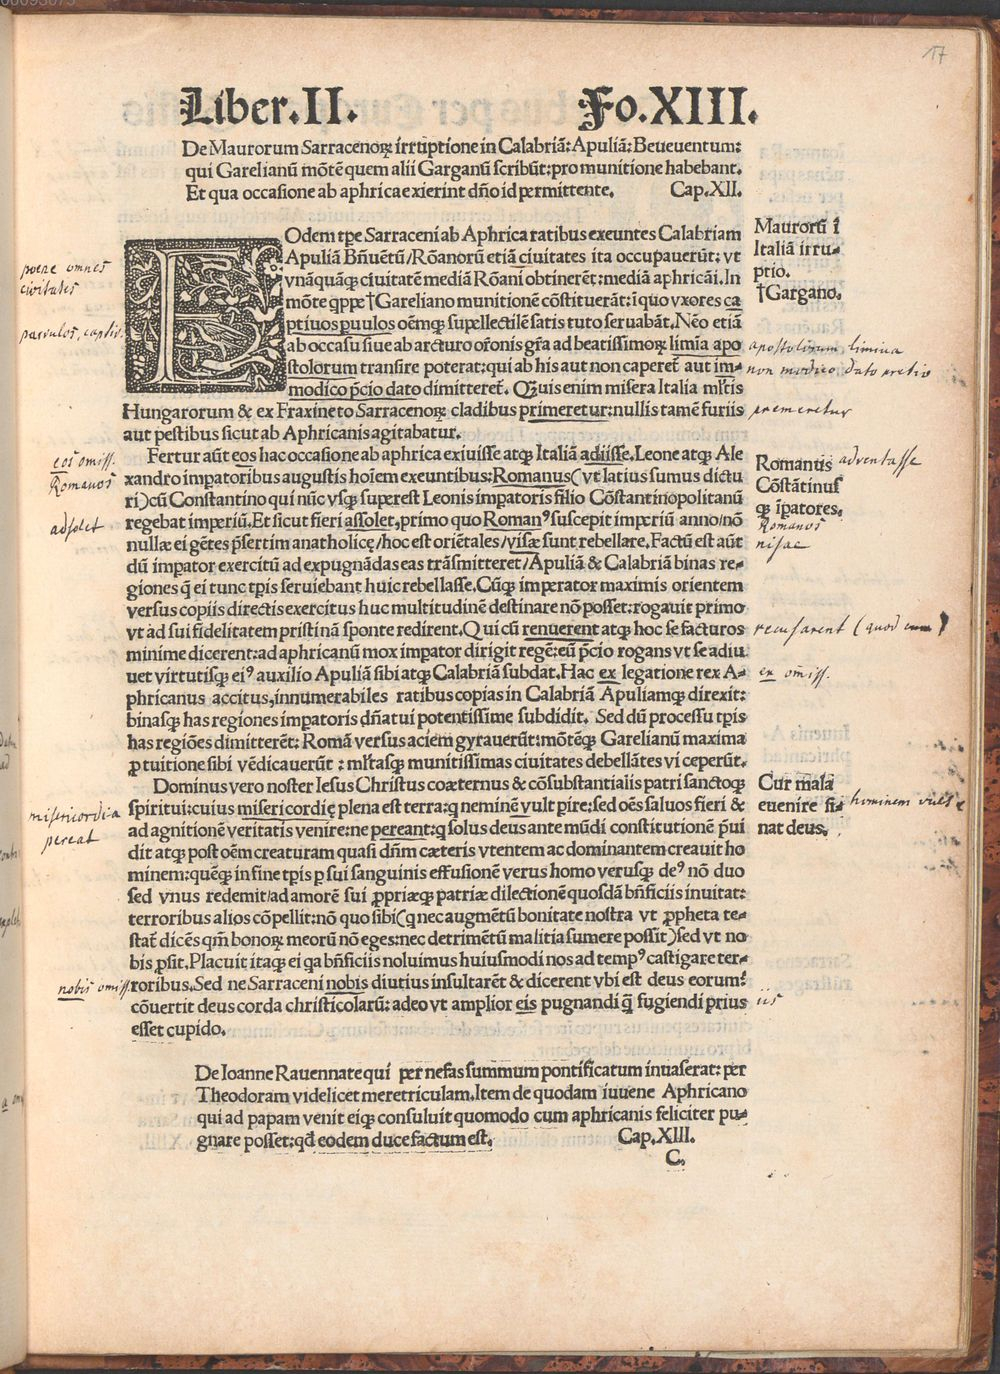 17
Liber.II. Fo.XIII.
De Maurorum Sarracenoꝝ irruptione in Calabriā: Apuliā: Beueuentum:
qui Garelianū mōtē quem alii Garganū scribūt: pro munitione habebant.
Et qua occasione ab aphrica exierint dño id permittente. Cap.XII.
EOdem tpe Sarraceni ab Aphrica ratibus exeuntes Calabriam
Apuliā Bñuētū/Rōanorū etiā ciuitates ita occupauerūt: vt
vnāquāqꝫ ciuitatē mediā Rōani obtinerēt: mediā aphricāi. In
mōte qppe †Gareliano munitionē cōstituerāt: i quo vxores ca
ptiuos puulos oēmqꝫ supellectilē satis tuto seruabāt. Nēo etiā
ab occasu siue ab arcturo orōnis gr̄a ad beatissimoꝝ limia apo
stolorum transire poterat: qui ab his aut non caperet̄ aut im-
modico p̄cio dato dimitteret̄. Qꝫuis enim misera Italia ml̄tis
Hungarorum & ex Fraxineto Sarracenoꝝ cladibus primeretur: nullis tamē furiis
aut pestibus sicut ab Aphricanis agitabatur.
Fertur aūt eos hac occasione ab aphrica exiuisse atqꝫ Italiā adiisse. Leone atqꝫ Ale
xandro imperatoribus augustis hoīem exeuntibus: Romanus (vt latius sumus dictu
ri) cū Constantino qui nūc vsqꝫ superest Leonis imperatoris filio Cōstantinopolitanū
regebat imperiū. Et sicut fieri assolet, primo quo Romanꝰ suscepit imperiū anno/nō
nullæ ei gētes p̄sertim anatholicę/hoc est oriētales/visæ sunt rebellare. Factū est aūt
dū impator exercitū ad expugnādas eas trāsmitteret/Apuliā & Calabriā binas re-
giones q̄ ei tunc tpis seruiebant huic rebellasse. Cūqꝫ imperator maximis orientem
versus copiis directis exercitus huc multitudinē destinare nō posset: rogauit primo
vt ad sui fidelitatem pristinā sponte redirent. Qui cū renuerent atqꝫ hoc se facturos
minime dicerent: ad aphricanū mox impator dirigit regē: eū p̄cio rogans vt se adiu
uet virtutisqꝫ eiꝰ auxilio Apuliā sibi atqꝫ Calabriā subdat. Hac ex legatione rex A-
phricanus accitus, innumerabiles ratibus copias in Calabriā Apuliamqꝫ direxit:
binasqꝫ has regiones imperatoris dn̄atui potentissime subdidit. Sed dū processu tpis
has regiōes dimitterēt: Romā versus aciem gyrauerūt: mōtēqꝫ Garelianū maxima
ꝓ tuitione sibi vēdicauerūt: ml̄tasqꝫ munitissimas ciuitates debellātes vi ceperūt.
Dominus vero noster Iesus Christus coæternus & cōsubstantialis patri sanctoqꝫ
spiritui: cuius misericordię plena est terra: q neminē vult pire: sed oēs saluos fieri &
ad agnitionē veritatis venire: ne pereant: q solus deus ante mūdi constitutionē p̄ui
dit atqꝫ post oēm creaturam quasi dn̄m cæteris vtentem ac dominantem creauit ho
minem: quēqꝫ in fine tpis p sui sanguinis effusionē verus homo verusqꝫ deꝰ nō duo
sed vnus redemit/ad amorē sui ꝓpriæqꝫ patriæ dilectionē quosdā bn̄ficiis inuitat:
terroribus alios cōpellit: nō quo sibi (q nec augmētū bonitate nostra vt ꝓpheta te-
stat̄ dicēs qm̄ bonoꝝ meorū nō eges: nec detrimētū malitia sumere possit) sed vt no
bis ꝓsit. Placuit itaqꝫ ei qa bn̄ficiis noluimus huiusmodi nos ad tempꝰ castigare ter-
roribus. Sed ne Sarraceni nobis diutius insultarēt & dicerent vbi est deus eorum?
cōuertit deus corda christicolarū: adeo vt amplior eis pugnandi q̄ fugiendi prius
esset cupido.
De Ioanne Rauennate qui per nefas summum pontificatum inuaserat: per
Theodoram videlicet meretriculam. Item de quodam iuuene Aphricano
qui ad papam venit eiqꝫ consuluit quomodo cum aphricanis feliciter pu-
gnare posset: qd eodem duce factum est. Cap.XIII.
C.
Maurorū ī
Italiā irru-
ptio.
†Gargano.
Romanus
Cōstātinus
qꝫ īpatores.
Cur mala
euenire si-
nat deus.
poene omnes
civitates
parvulos, captiv.
eos omiss.
Romanos
adsolet
misericordia
pereat
nobis omiss.
apostolorum limina
non modico dato pretio
premeretur
adventasse
Romanos
nisae
recusarent (quod cum)
ex omiss.
hominem vult
iis